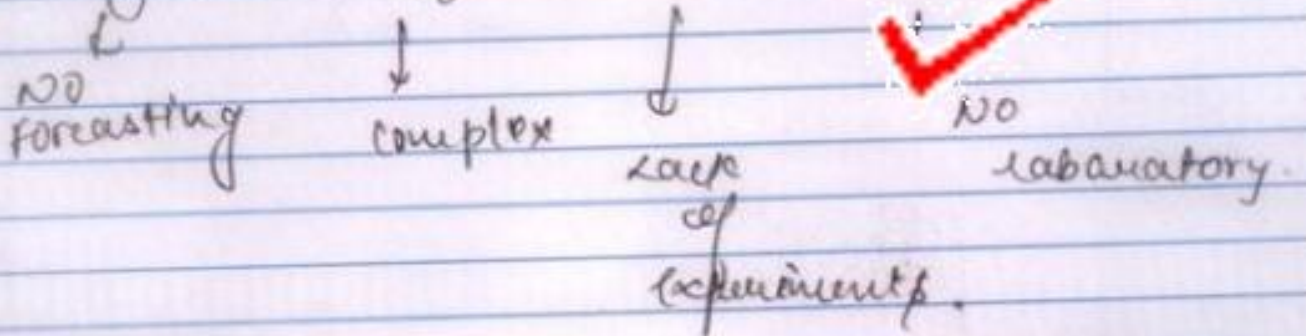 NO
Forcasting
complex
Lack
of
experiments.
NO
labaratory.